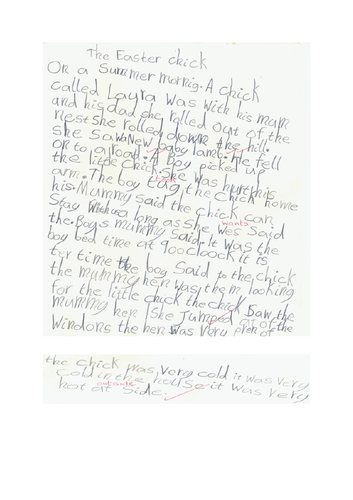 The Easter chick
On a Summer mornig. A chick
called Layra was with his mum
and his dad she rolled out of the
nest she rolled down the hill.
she saw New baby lamb. he fell
on to a road. A Boy picked up
the little chick. She was hurt his
arm. The boy tug the chick home
took
his. Mummy said the chick can
wants
Stay with us long as she wes said
the. Boys mummy said. It was the
boy bed time at 9 oo cloock it is
ter time the boy said to the chick
the mummy hen was them looking
for the little chick the chick saw the
mummy hen she jumped of the
windons the hen was very of the
the chick was very cold it was very
cold in the house it was very
outside
hot at side.